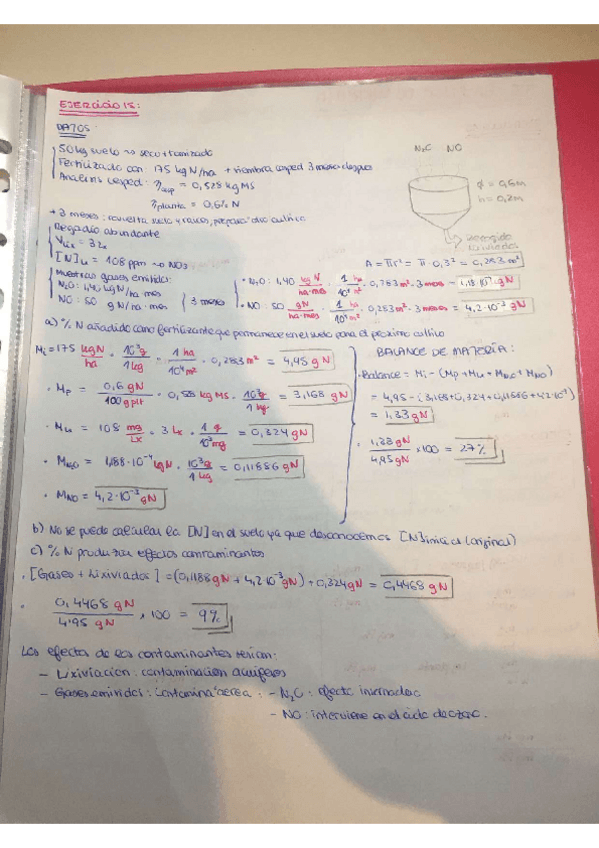 EJERCICIO 15:
DATOS:
50 kg suelo → seco y tamizado
Fertilizado con: 175 kg N/ha + siembra césped 3 meses después
Análisis césped: ηcesp = 0,528 kg MS
ηplanta = 0,6% N
+ 3 meses: revuelta suelo y raíces, prepara otro cultivo
Regadío abundante
VLix = 3 Lx
[N]Lx = 108 ppm → NO3
Muestras gases emitidos:
N2O: 1,40 kg N/ha·mes
NO: 50 g N/ha·mes } 3 meses
N2O NO
φ = 0,6m
h = 0,2m
recogida
lixiviados
A = πr² = π·0,3² = 0,283 m²
• N2O: 1,40 kg N/ha·mes · 1 ha/10⁴ m² · 0,283 m² · 3 meses = 1,18·10⁻⁴ kg N
• NO: 50 gN/ha·mes · 1 ha/10⁴ m² · 0,283 m² · 3 meses = 4,2·10⁻³ gN
a) % N añadido como fertilizante que permanece en el suelo para el próximo cultivo
Mi = 175 kgN/ha · 10³g/1 kg · 1 ha/10⁴ m² · 0,283 m² = 4,95 g N
• Mp = 0,6 gN/100 g plt · 0,58 kg MS · 10³g/1 kg = 3,168 gN
• Mu = 108 mg/Lx · 3 Lx · 1 g/10³ mg = 0,324 gN
• MN2O = 1,188·10⁻⁴ kgN · 10³g/1 kg = 0,11886 gN
• MNO = 4,2·10⁻³ gN
BALANCE DE MATERIA:
• Balance = Mi - (Mp + Mu + MN2O + MNO)
= 4,95 - (3,168+0,324+0,11886+4,2·10⁻³)
= 1,33 gN
• 1,33 gN/4,95 gN × 100 = 27%
b) No se puede calcular la [N] en el suelo ya que desconocemos [N] inicial (original)
c) % N produzca efectos contaminantes
• [Gases + Lixiviados] = (0,1188 gN + 4,2·10⁻³ gN) + 0,324 gN = 0,4468 gN
• 0,4468 gN/4,95 gN · 100 = 9%
Los efectos de los contaminantes serían:
- Lixiviación: contaminación acuíferos
- Gases emitidos: contamina aérea: - N2O: efecto invernadero
- NO: interviene en el ciclo de ozono.